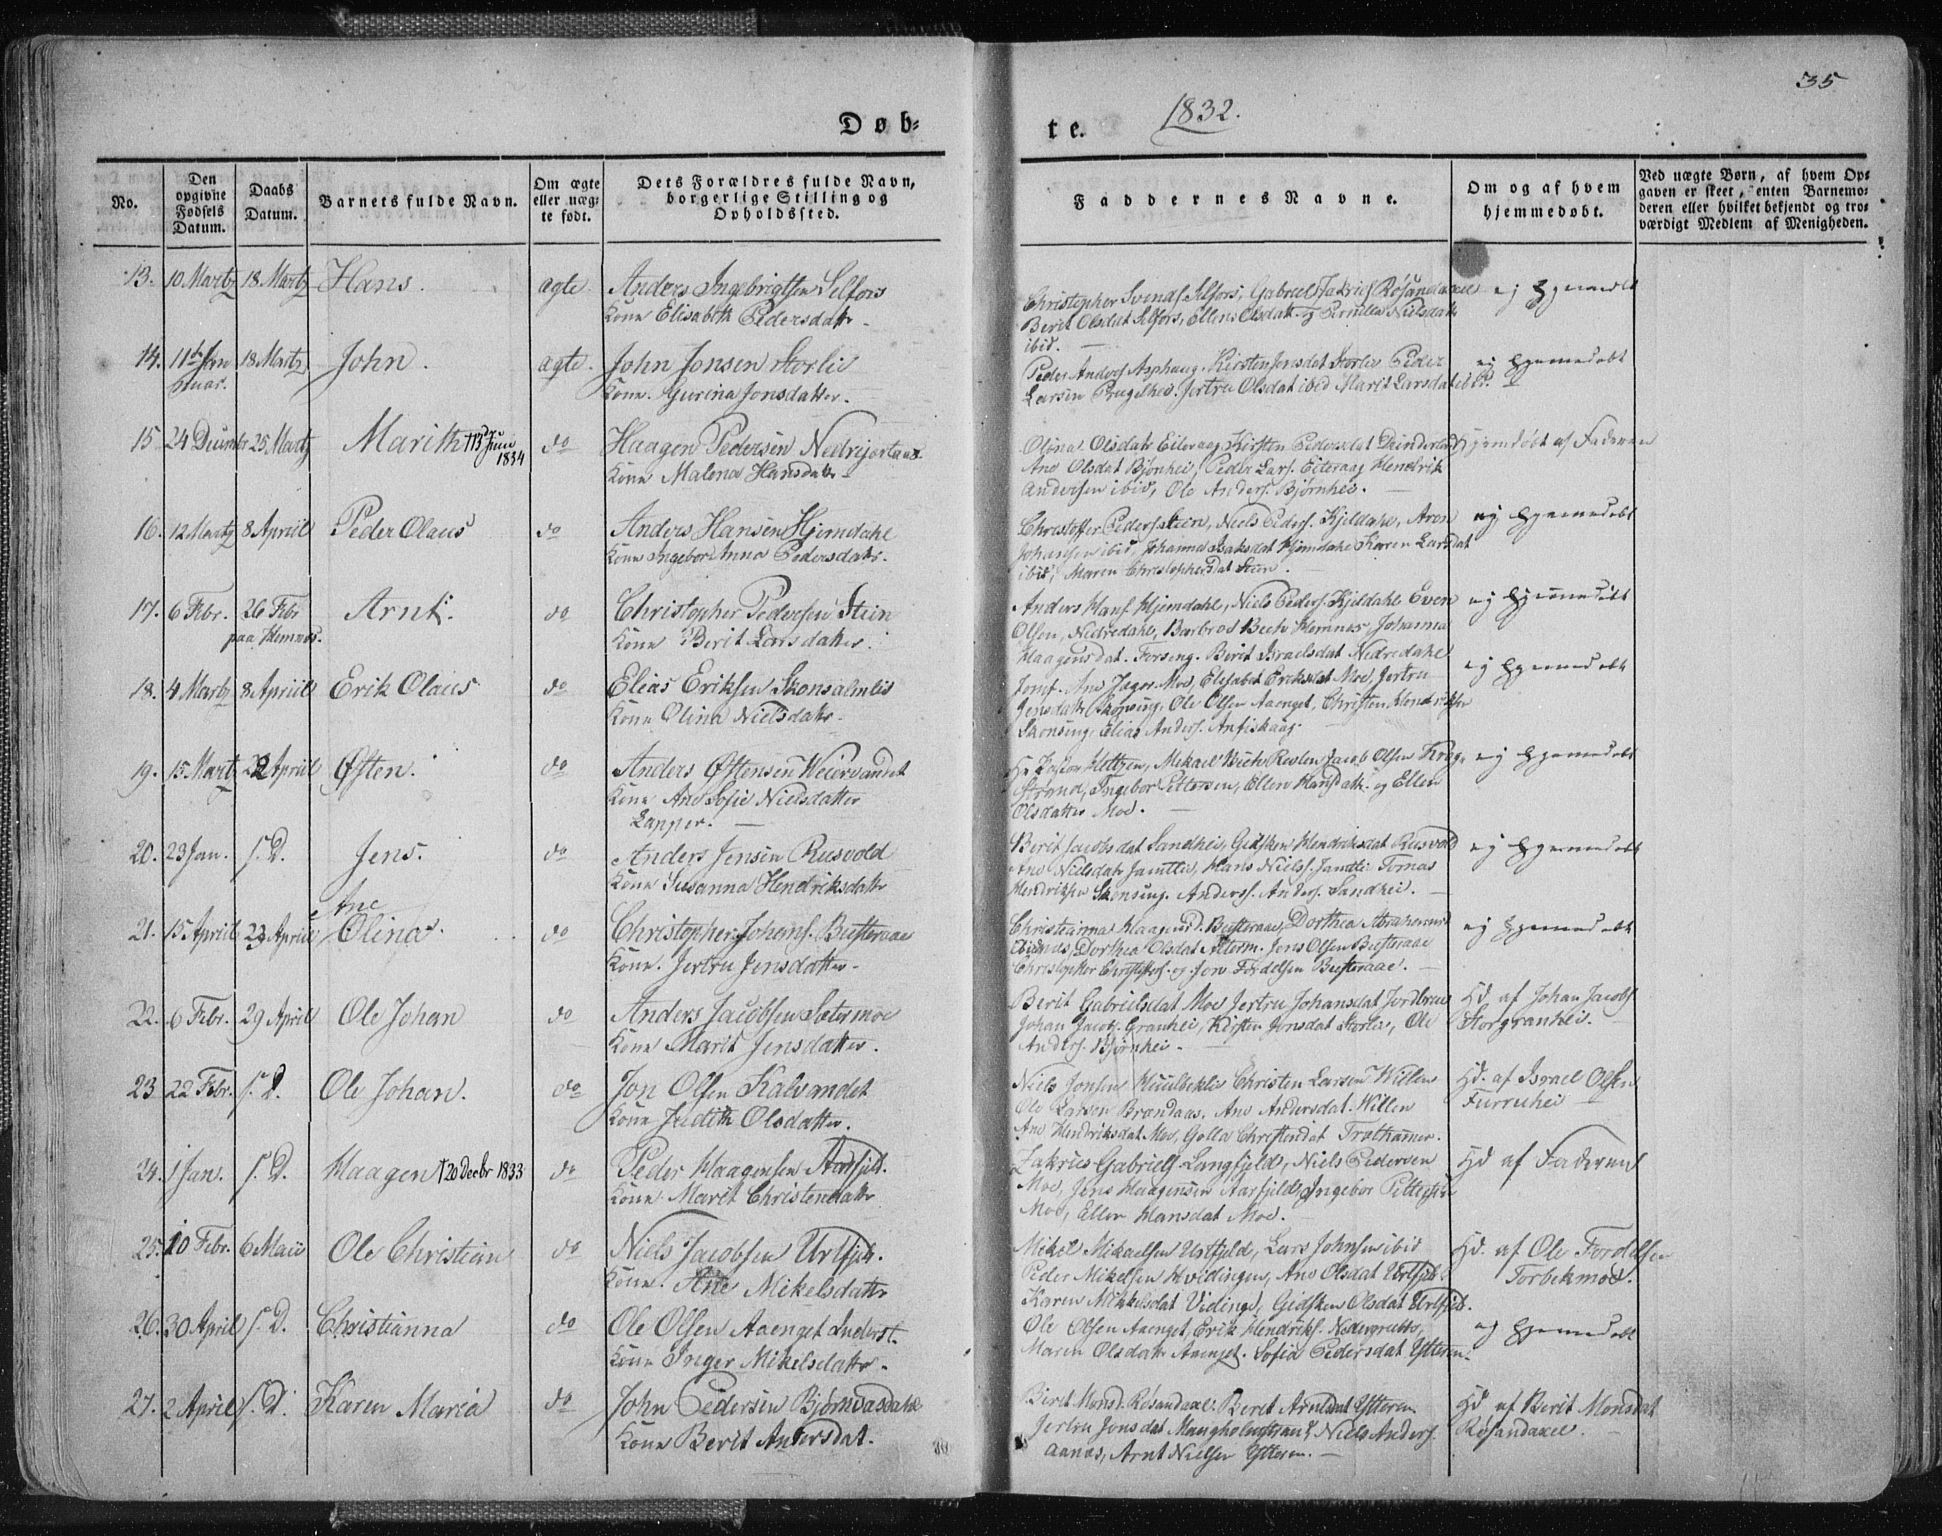 35
1832.
Døb=
te.
No.
Den opgivne Fødsels Datum.
Daabs Datum.
Barnets fulde Navn.
Om ægte eller uæg- te født.
Dets Forældres fulde Navn, borgerlige Stilling og Opholdsted.
Faddernes Navne.
Om og af hvem hjemmedøbt.
Ved uægte Børn, af hvem Op- gaven er skeet, enten Barnemo- deren eller hvilket bekjendt og tro- værdigt Medlem af Menigheden.
13. 10 Martz 18 Martz Hans. ægte. Anders Ingebrigtsen Selfors
Kone Elisabeth Pedersdatr.
Christopher Svends. Selfors, Gabriel Røsandaxel
Berit Olsdat Selfors, Ellen Olsdatr. og Pernille Nielsdatr
ibid.
ej hjemedøbt
14. 11te Jan 18 Martz John. ægte. John Jonsen Storlie
nuar.
Kone. Gurina Jonsdatter.
Peder Anders Asphaug. Kirsten Jonsdat Storlie Peder
Larsen Prugelhei. Jertru Olsdat ibid Marit Larsdat ibid.
ej hjemedøbt
15 24 Decembr 25 Martz Marith † 13 Juni 1834 do Haagen Pedersen
Kone Malena Hansdatr
Olina Olsdatr Eiteraag, Kirsten Pedersdat
Ane Olsdat Bjørnhei, Peder Lars. Eiteraag Hendrik
Andersen ibid, Ole Anders. Bjørnhei.
Hjemdøbt af Faderen
16. 12 Martz 8 Apriil Peder Olaus do Anders Hansen Hjemdahl
Kone Ingebor Anna Pedersdatr.
Christoffer Peders Stein, Niels Peders. Kjeldahl, Aron
Johansen ibid, Johanna Isaksdat Hjemdahl Karen Larsdat
ibid, Maren Christophersdat Stein.
ej hjemedøbt
17. 6 Febr. 26 Febr Arnt. do Christopher Pedersen Stein
paa Hemnes.
Kone Berit Larsdatter.
Anders Hans. Hjemdahl, Niels Peders. Kjeldahl Even
Olsen, Nedredahl, Barbro Bech Hemnes Johanna
Haagensdat. Forseng. Berit Israelsdat Nedredahl
ej hjemedøbt
18. 4 Martz 8 Apriil Erik Olaus do Elias Eriksen Skonsalmlie
Kone Olina Nielsdatr.
Jomf. Ane Jager Moe, Elisabet Eriksdat Moe, Jertru
Jensdatr Skonseng, Ole Olsen Aaenget, Christen Hendriksen
Skonseng, Elias Anders.
ej hjemedøbt
19. 15 Martz 22 Apriil Østen. do Anders Østensen
Kone Ane Sofie Nielsdatter
Lapper.
Hr Pastor Heltzen, Mekael Bech Jacob Olsen
Strand, Ingebor Pettersen, Ellen Hansdatr. og Ellen
Olsdatter Moe.
ej hjemedøbt
20. 23 Jan. s. D. Jens. do Anders Jensen Rusvold
Kone Susanna Hendriksdatr
Berit Jacobsdat Sandhei, Gidsken Hendriksdat Rusvold
Ane Nielsdatr Jamtlie, Hans Niels. Jamtlie Tomas
Hendriksen Skonseng. Anders. Anders. Sandhei.
ej hjemedøbt
Ane
21. 15 Apriil 23 Apriil Olina. do Christopher Johans. Busteraae
Kone. Jertru Jensdatter.
Christianna Haagensd. Busteraae, Dorthea Abrahamsd
Dorthea Olsdat Jens Olsen Busteraae
Christopher og Jon Fordelsen Busteraae.
ej hjemedøbt
22. 6 Febr. 29 April Ole Johan do Anders Jacobsen Sætermoe
Kone Marit Jensdatter.
Berit Gabrielsdat Moe Jertru Johansdat Jordbrue
Johan Jacobs. Granhei, Kirsten Jonsdat Storlie, Ole
Anders. Bjørnhei.
Hd af Johan Jacobs.
Storgranhei.
23 22 Febr. s. D. Ole Johan. do Jon Olsen Kalvandet
Kone Judith Olsdatter.
Niels Jonsen Christen Larsen Willen
Ole Larsen Brandaas, Ane Andersdat. Willen
Ane Hendriksdat Moe, Golla Christensdat
Hd. af Israel Olsen
Furruhei
24. 1 Jan. s. D. Haagen † 20 Decbr 1833 do Peder Haagensen Aarfjeld.
Kone Marit Christensdatr
Zakries Gabriels. Langfjeld, Niels Pedersen
Moe, Jens Haagensen Aarfjeld, Ingebor Pettersen
Moe, Ellen Hansdat Moe.
Hd af Faderen
25. 10 Febr. 6 Maii Ole Christian do Niels Jacobsen Urtfjeld.
Kone. Ane Mikelsdatr
Mikel Mikaelsen Urtfjeld, Lars Johnsen ibid
Peder Mikelsen Hvidingen, Ane Olsdat Urtfjeld
Karen Mikkelsdat Vidinge, Gidsken Olsdat Urtfjeld.
Hd. af Ole Fordelsen
Forbekmoe.
26. 30 April s. D. Christianna do Ole Olsen Aaenget Inderst.
Kone Inger Mikelsdatr.
Ole Olsen Aaenget, Erik Hendriks.
Maren Olsdatr Aaenget. Sofia Pedersdat Ytteren.
ej hjemedøbt
27. 2 April s. D. Karen Maria do John Pedersen Bjørndasdahl
Kone Berit Andersdat.
Berit Monsd. Røsandaxel. Beret Arntdat Ytteren
Jertru Jonsdat Niels Anders.
Aanæs, Arnt Nielsen Ytteren.
Hd af Berit Monsdat
Røsandaxel.